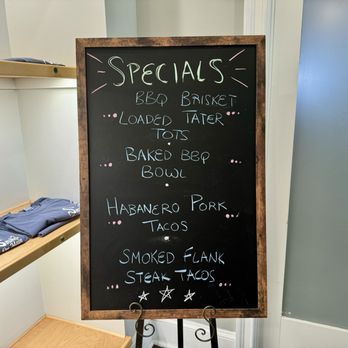 SPECIALS
BBQ BRISKET
LOADED TATER
TOTS
BAKED BBQ
BOWL
HABANERO PORK
TACOS
SMOKED FLANK
STEAK TACOS